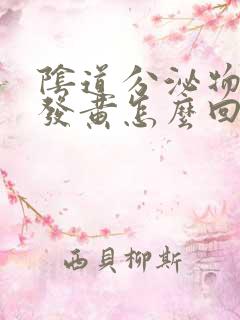 陰道分泌物
發黃怎麼回
西貝柳斯